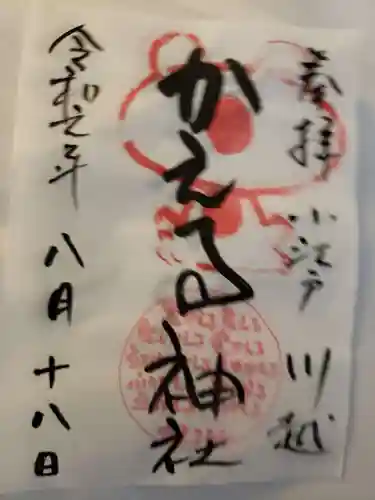 奉拝 小江戸 川越
かえる神社
令和元年 八月 十八日